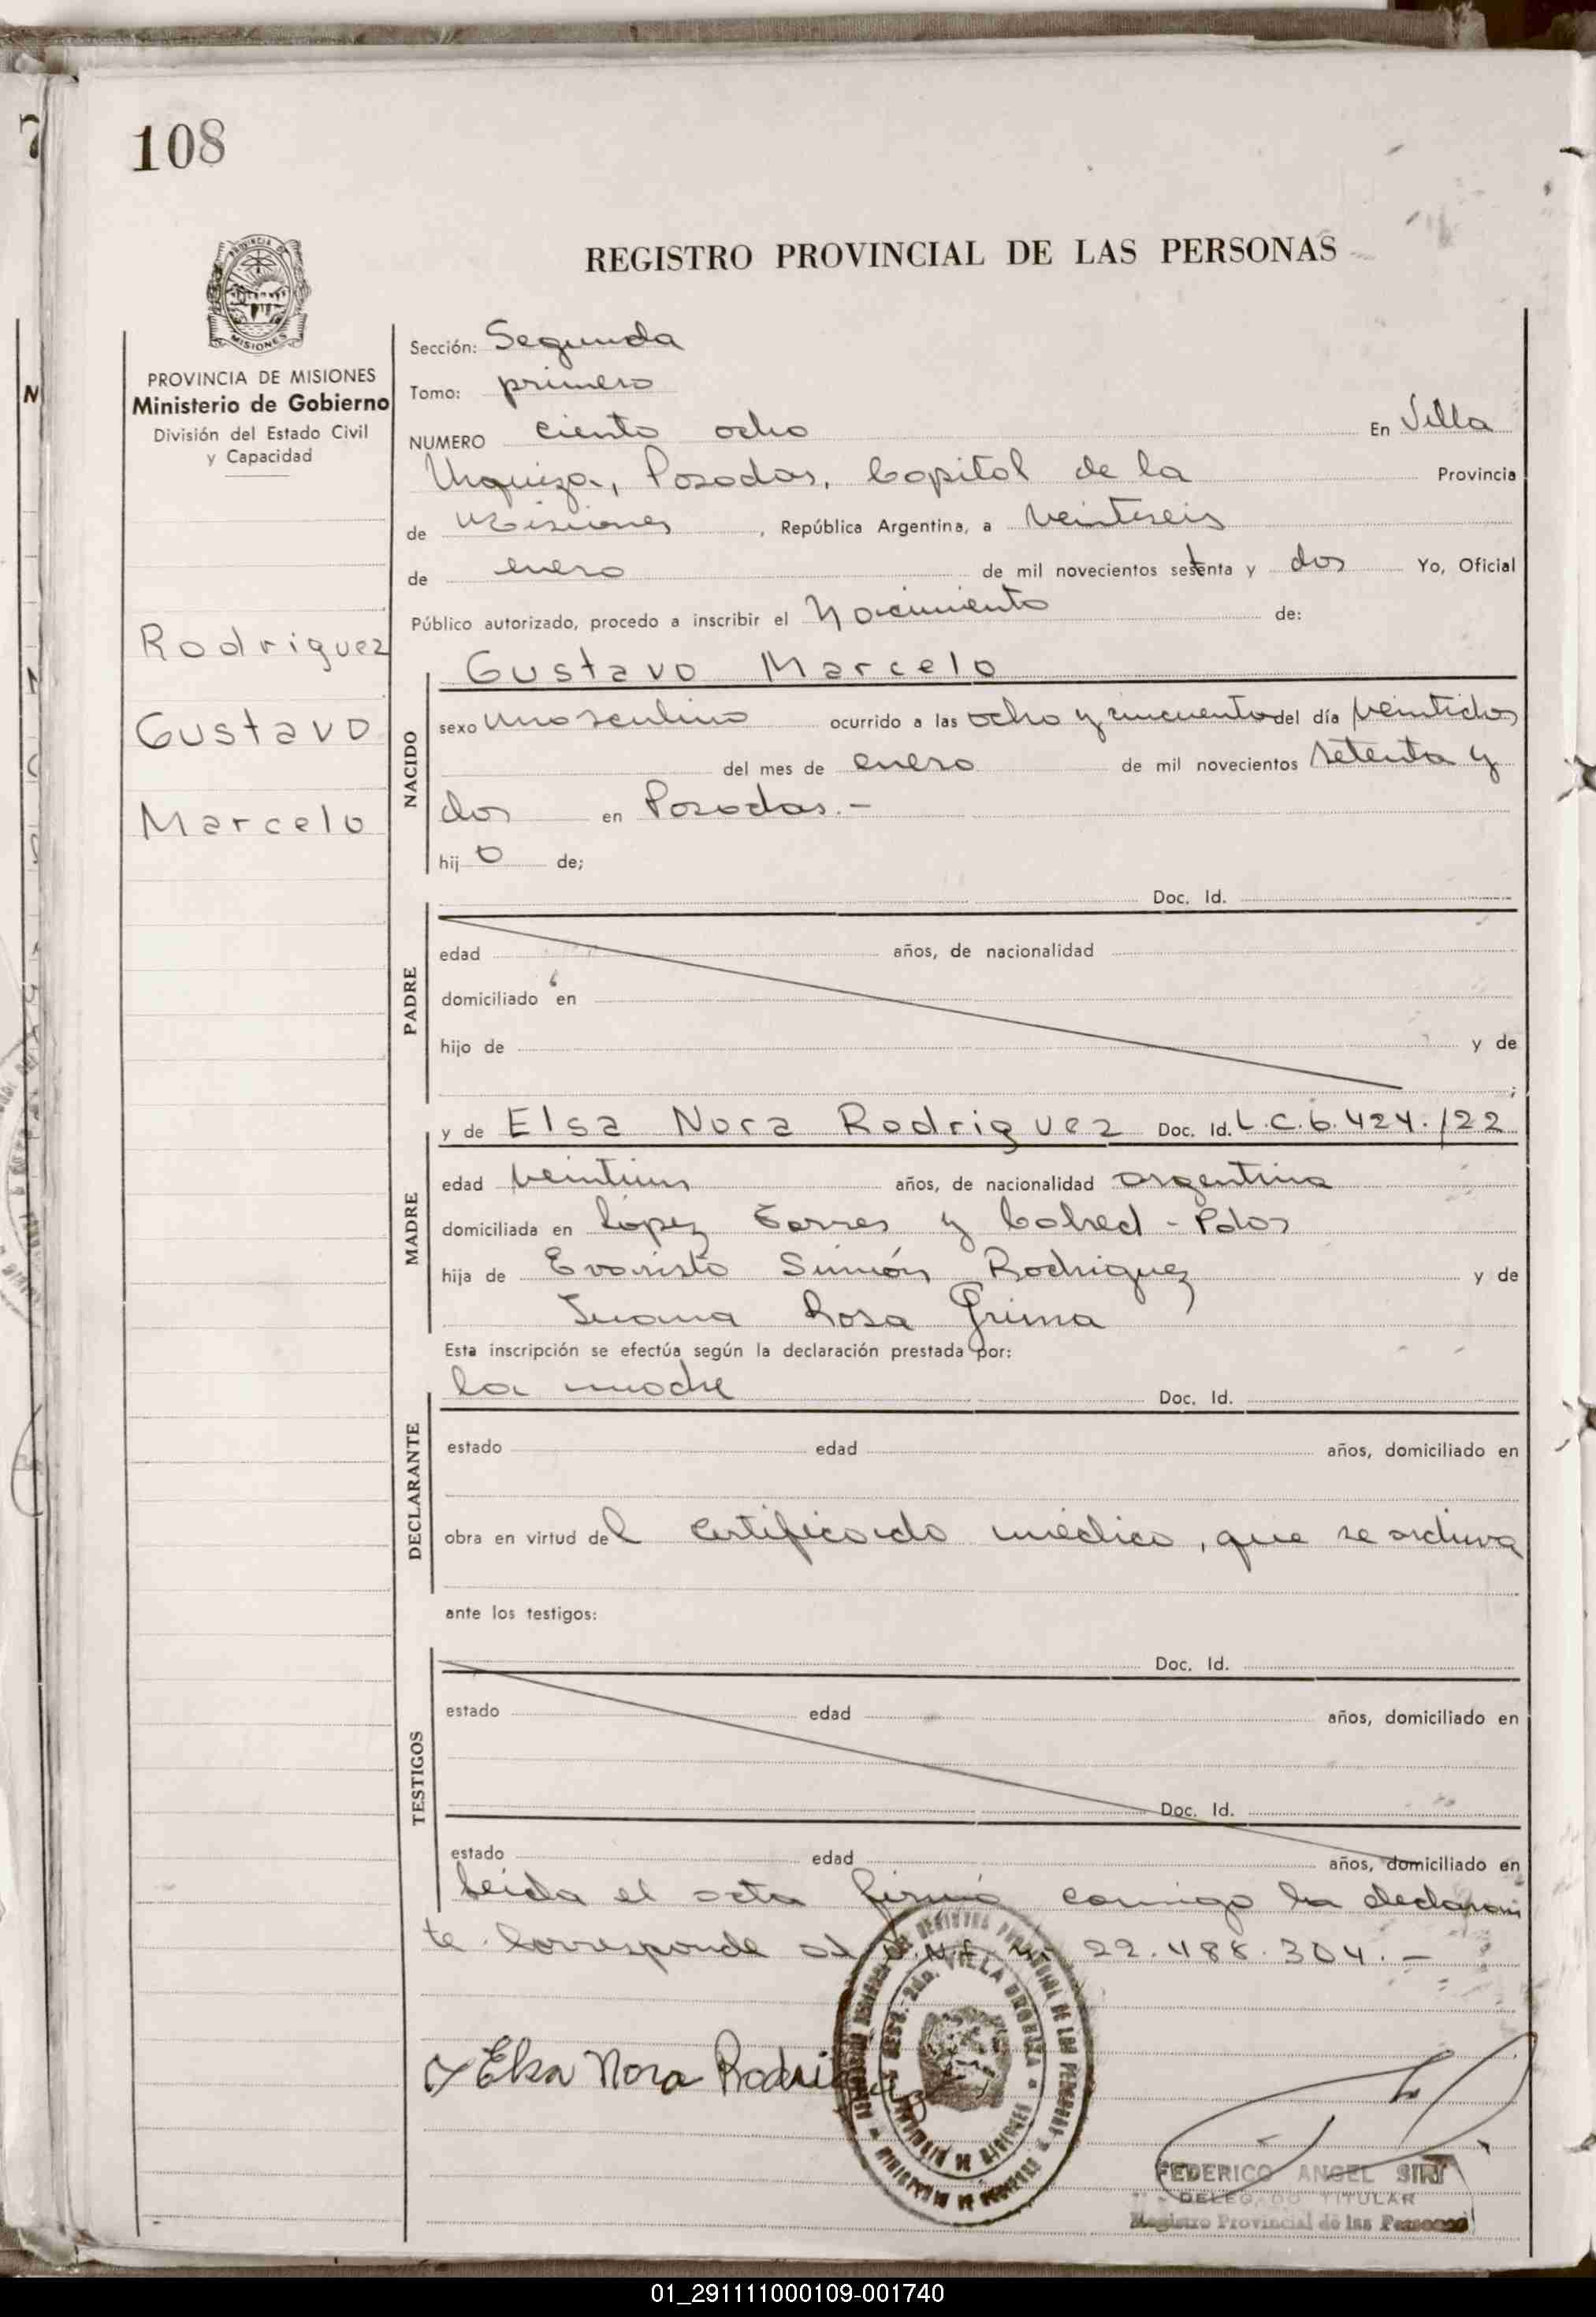 108
REGISTRO PROVINCIAL DE LAS PERSONAS
MISIONES
PROVINCIA DE MISIONES
Ministerio de Gobierno
División del Estado Civil
y Capacidad
Rodriguez
Gustavo
Marcelo
Sección: Segunda
Tomo: primero
NUMERO ciento ocho En Villa
Urquiza, Posadas, Capital de la Provincia
de Misiones, República Argentina, a veintiseis
de enero de mil novecientos setenta y dos Yo, Oficial
Público autorizado, procedo a inscribir el Nacimiento de:
Gustavo Marcelo
NACIDO
sexo masculino ocurrido a las ocho y cincuenta del día veintidos
del mes de enero de mil novecientos setenta y
dos en Posadas.-
hij o de;
Doc. Id.
PADRE
edad años, de nacionalidad
domiciliado en
hijo de y de
;
y de Elsa Nora Rodriguez Doc. Id. L.C.6.424.122
MADRE
edad veintiun años, de nacionalidad argentina
domiciliada en López Torres y - Pdas
hija de Evaristo Simón Rodriguez y de
Juana Rosa Grima
Esta inscripción se efectúa según la declaración prestada por:
la madre Doc. Id.
DECLARANTE
estado edad años, domiciliado en
obra en virtud del certificado médico, que se archiva
ante los testigos:
Doc. Id.
TESTIGOS
estado edad años, domiciliado en
Doc. Id.
estado edad años, domiciliado en
Leida el acta firmó conmigo la declaran
te. Corresponde al D.N.I. Nº 22.488.304.-
Elsa Nora Rodriguez
VILLA URQUIZA
PROVINCIA DE MISIONES
MINISTERIO DE GOBIERNO
FEDERICO ANGEL
DELEGADO TITULAR
Registro Provincial de las Personas
01_291111000109-001740